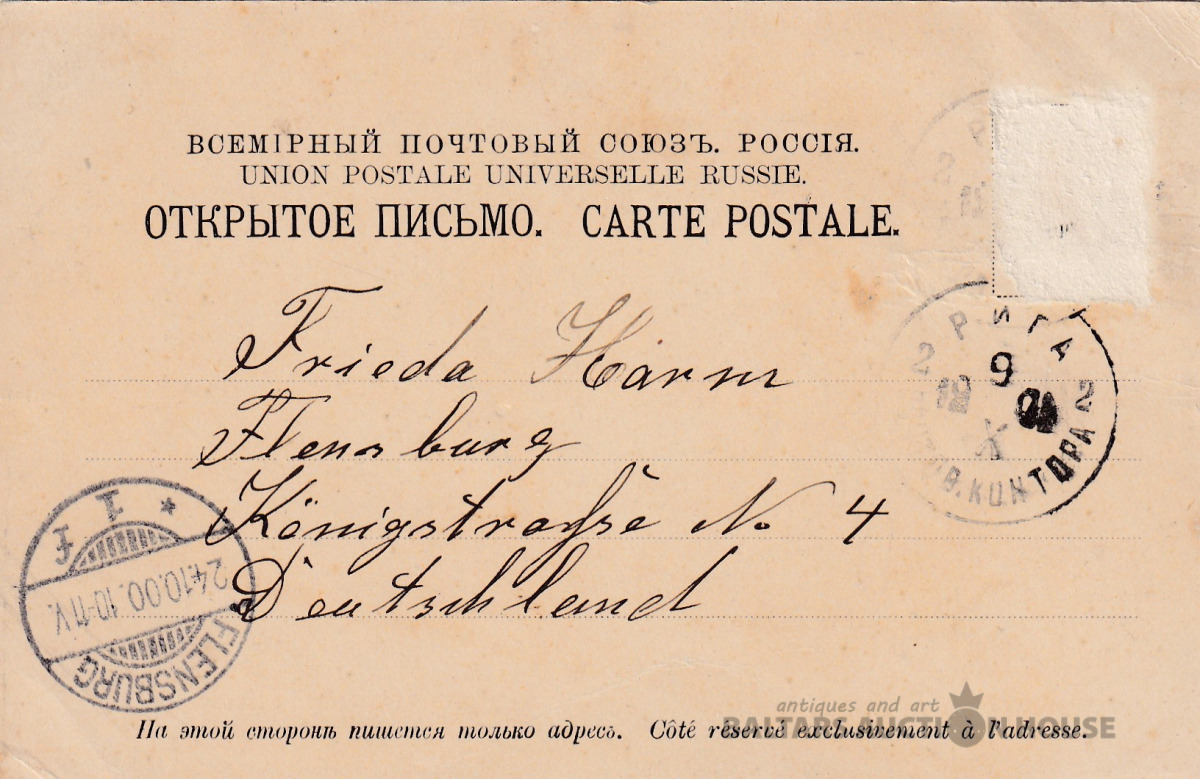 ВСЕМІРНЫЙ ПОЧТОВЫЙ СОЮЗЪ. РОССІЯ.
UNION POSTALE UNIVERSELLE RUSSIE.
ОТКРЫТОЕ ПИСЬМО. CARTE POSTALE.
РИГА
2
9
X
2
КОНТОРА
Frieda Harm
Flensburg
Königstraße No 4
Deutschland
* 1
24.10.00.10-11V.
FLENSBURG
На этой сторонѣ пишется только адресъ. Côté réservé exclusivement à l'adresse.
antiques and art
BALTARS AUCTION HOUSE